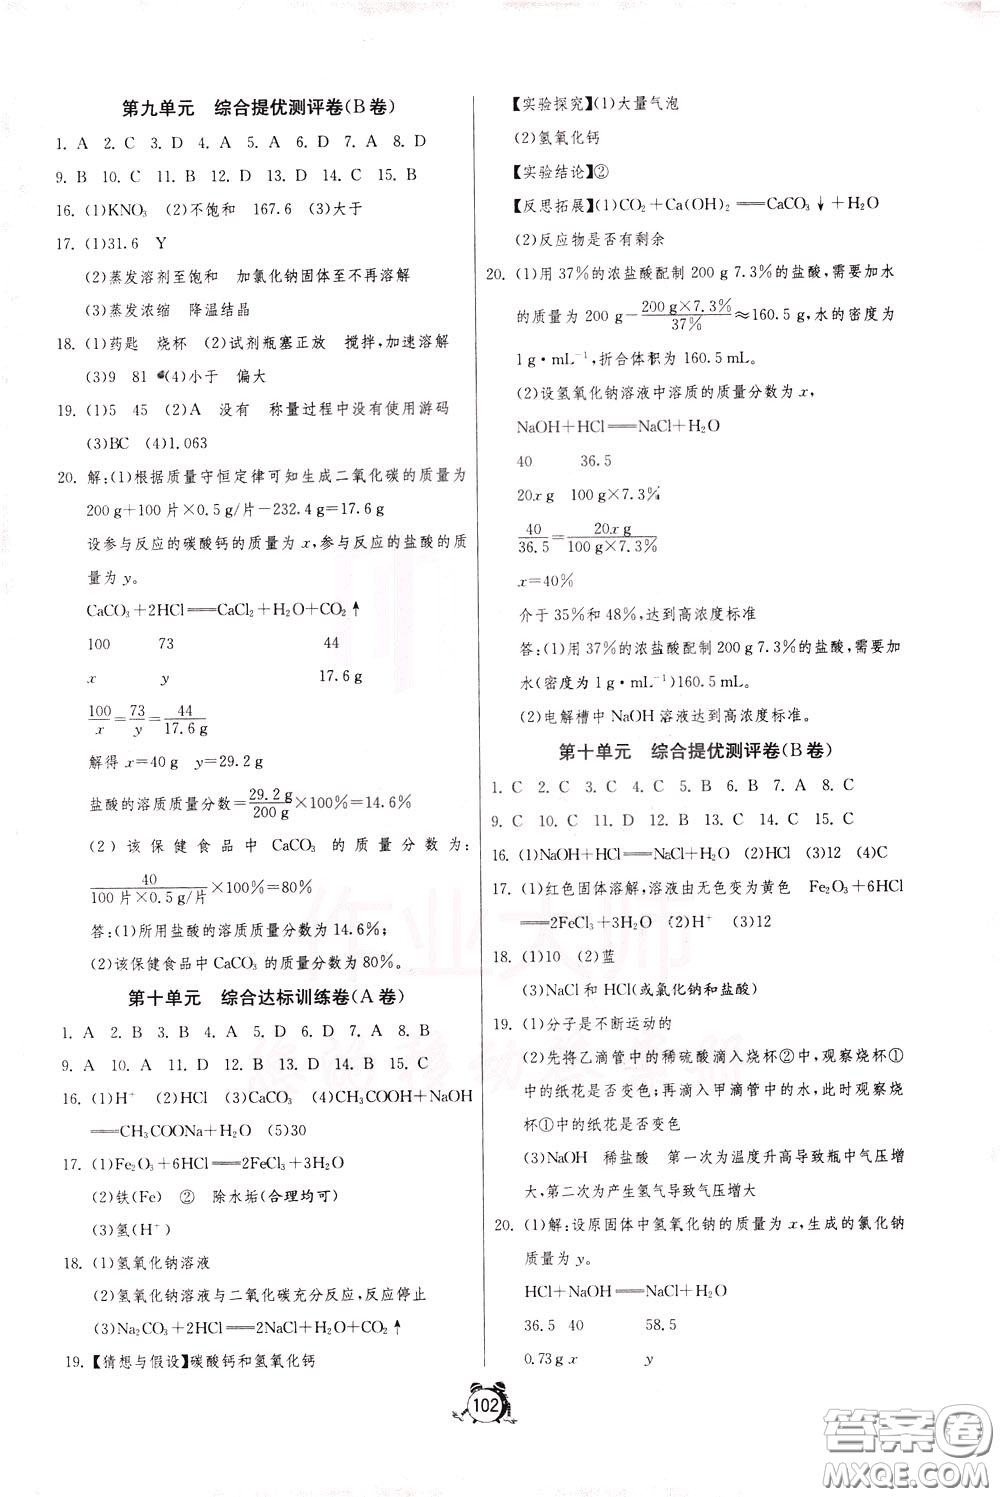 第九单元 综合提优测评卷(B卷)
1. A 2. C 3. D 4. A 5. A 6. D 7. A 8. D
9. B 10. C 11. B 12. D 13. A 14. C 15. B
16. (1)KNO₃ (2)不饱和 167.6 (3)大于
17. (1)31.6 Y
(2)蒸发溶剂至饱和 加氯化钠固体至不再溶解
(3)蒸发浓缩 降温结晶
18. (1)药匙 烧杯 (2)试剂瓶塞正放 搅拌,加速溶解
(3)9 81 (4)小于 偏大
19. (1)5 45 (2)A 没有 称量过程中没有使用游码
(3)BC (4)1.063
20. 解:(1)根据质量守恒定律可知生成二氧化碳的质量为
200 g+100 片×0.5 g/片-232.4 g=17.6 g
设参与反应的碳酸钙的质量为 x,参与反应的盐酸的质
量为 y。
CaCO₃+2HCl══CaCl₂+H₂O+CO₂↑
100 73 44
x y 17.6 g
100/x=73/y=44/17.6 g
解得 x=40 g y=29.2 g
盐酸的溶质质量分数=29.2 g/200 g×100%=14.6%
(2)该保健食品中 CaCO₃ 的质量分数为:
40/100 片×0.5 g/片×100%=80%
答:(1)所用盐酸的溶质质量分数为 14.6%;
(2)该保健食品中 CaCO₃ 的质量分数为 80%。
第十单元 综合达标训练卷(A卷)
1. A 2. B 3. B 4. A 5. D 6. D 7. D 8. C
9. A 10. A 11. D 12. B 13. D 14. B 15. C
16. (1)H⁺ (2)HCl (3)CaCO₃ (4)CH₃COOH+NaOH
══CH₃COONa+H₂O (5)30
17. (1)Fe₂O₃+6HCl══2FeCl₃+3H₂O
(2)铁(Fe) ② 除水垢(合理均可)
(3)氢(H⁺)
18. (1)氢氧化钠溶液
(2)氢氧化钠溶液与二氧化碳充分反应,反应停止
(3)Na₂CO₃+2HCl══2NaCl+H₂O+CO₂↑
19. 【猜想与假设】碳酸钙和氢氧化钙
【实验探究】(1)大量气泡
(2)氢氧化钙
【实验结论】②
【反思拓展】(1)CO₂+Ca(OH)₂══CaCO₃↓+H₂O
(2)反应物是否有剩余
20. (1)用 37%的浓盐酸配制 200 g 7.3%的盐酸,需要加水
的质量为 200 g-200 g×7.3%/37%≈160.5 g,水的密度为
1 g·mL⁻¹,折合体积为 160.5 mL。
(2)设氢氧化钠溶液中溶质的质量分数为 x,
NaOH+HCl══NaCl+H₂O
40 36.5
20x g 100 g×7.3%
40/36.5=20x g/100 g×7.3%
x=40%
介于 35%和 48%,达到高浓度标准
答:(1)用 37%的浓盐酸配制 200 g 7.3%的盐酸,需要加
水(密度为 1 g·mL⁻¹)160.5 mL。
(2)电解槽中 NaOH 溶液达到高浓度标准。
第十单元 综合提优测评卷(B卷)
1. C 2. C 3. C 4. C 5. B 6. B 7. A 8. C
9. C 10. C 11. D 12. B 13. C 14. C 15. C
16. (1)NaOH+HCl══NaCl+H₂O (2)HCl (3)12 (4)C
17. (1)红色固体溶解,溶液由无色变为黄色 Fe₂O₃+6HCl
══2FeCl₃+3H₂O (2)H⁺ (3)12
18. (1)10 (2)蓝
(3)NaCl 和 HCl(或氯化钠和盐酸)
19. (1)分子是不断运动的
(2)先将乙滴管中的稀硫酸滴入烧杯②中,观察烧杯①
中的纸花是否变色;再滴入甲滴管中的水,此时观察烧
杯①中的纸花是否变色
(3)NaOH 稀盐酸 第一次为温度升高导致瓶中气压增
大,第二次为产生氢气导致气压增大
20. (1)解:设原固体中氢氧化钠的质量为 x,生成的氯化钠
质量为 y。
HCl+NaOH══NaCl+H₂O
36.5 40 58.5
0.73 g x y
102
作业大师
答案圈
MXQE.COM